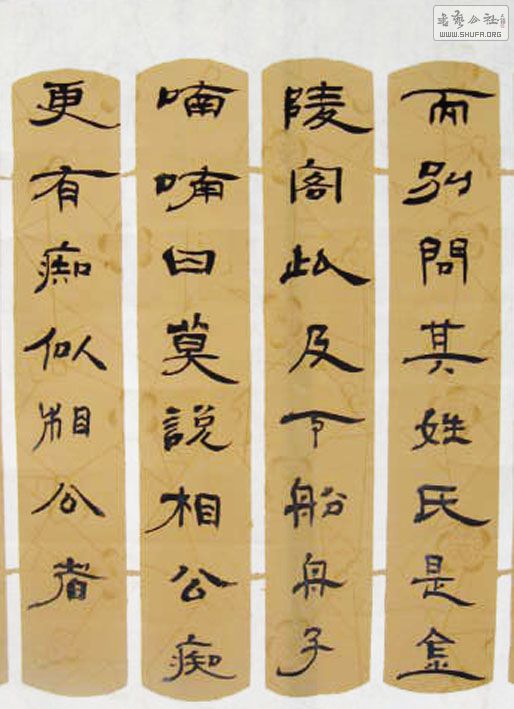 而別問其姓氏是金
陵客此及下船舟子
喃喃曰莫說相公痴
更有痴似相公者
書藝公社
WWW.SHUFA.ORG